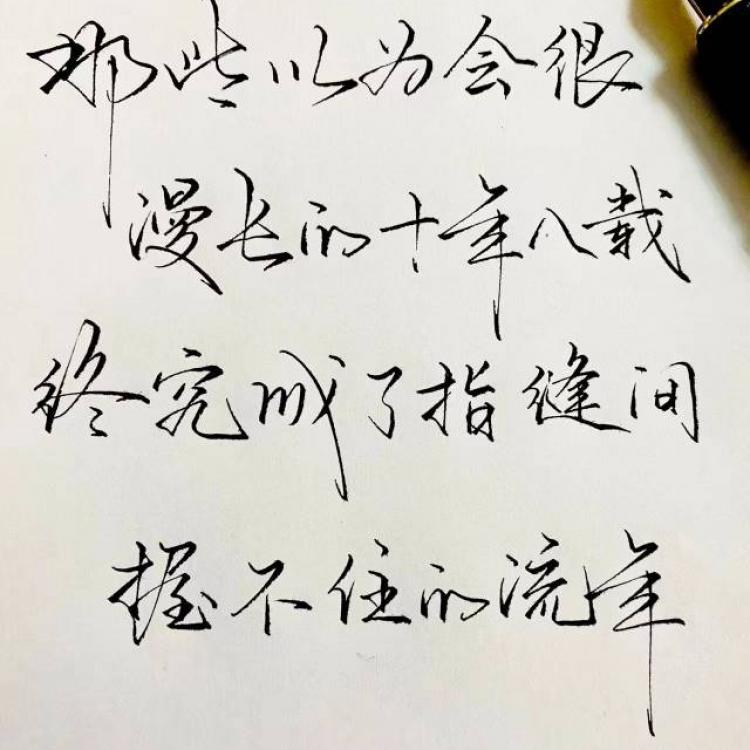 那些以为会很
漫长的十年八载
终究成了指缝间
握不住的流年